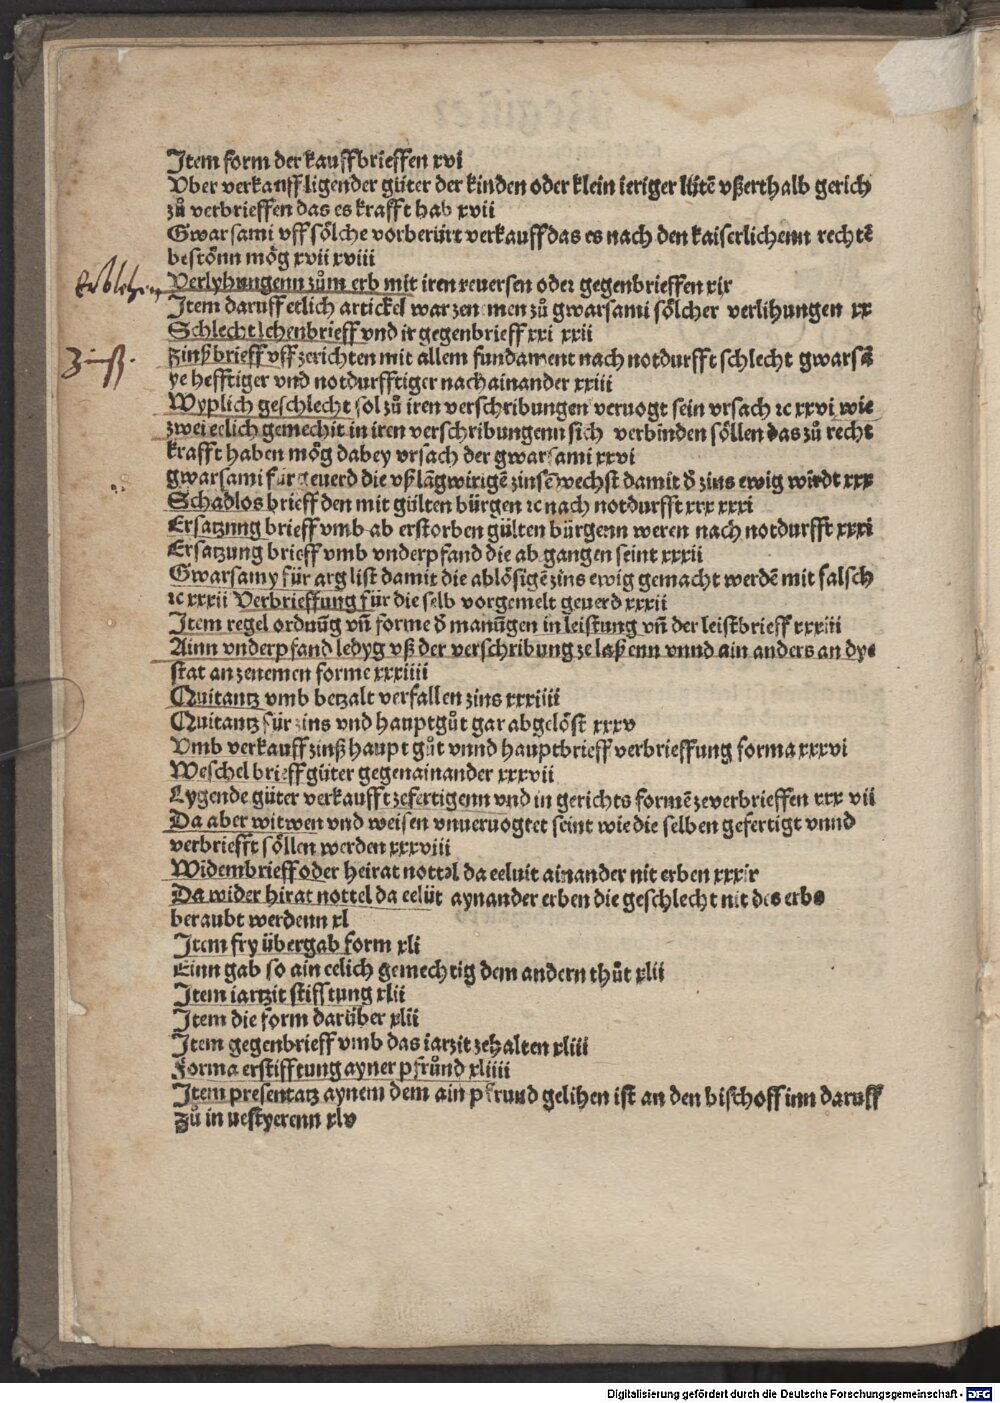 Item form der kauffbrieffen xvi
Vber verkauff ligender güter der kinden oder klein ieriger lütē vßerthalb gerich
zů verbrieffen das es krafft hab xvii
Gwarsami vff sölche vorberürt verkauff das es nach den kaiserlichenn rechtē
bestönn mög xvii xviii
Erblehen
Verlyhungenn zům erb mit iren reuersen oder gegenbrieffen xix
Item daruff etlich artickel war zenemen zů gwarsami sölcher verlihungen xx
Schlecht lehenbrieff vnd ir gegenbrieff xxi xxii
Zinß.
Zinßbrieff vff zerichten mit allem fundament nach notdurfft schlecht gwarsā
ye hefftiger vnd notdurfftiger nachainander xxiii
Wyplich geschlecht sol zů iren verschribungen veruogt sein vrsach ⁊c xxvi wie
zwei eelich gemechit in iren verschribungenn sich verbinden söllen das zů recht
krafft haben mög dabey vrsach der gwarsami xxvi
gwarsami für geuerd die vß lāgwirigē zinsē wechst damit d̄ zins ewig wirdt xxx
Schadlos brieff den mit gülten bürgen ⁊c nach notdurfft xxx xxxi
Ersatzung brieff vmb ab erstorben gülten bürgenn weren nach notdurfft xxxi
Ersatzung brieff vmb vnderpfand die ab gangen seint xxxii
Gwarsamy für arglist damit die ablösigē zins ewig gemacht werdē mit falsch
⁊c xxxii Verbrieffung für die selb vorgemelt geuerd xxxii
Item regel ordnūg vn̄ forme d̄ manūgen in leistung vn̄ der leistbrieff xxxiii
Ainn vnderpfand ledyg vß der verschribung ze laßenn vnnd ain anders an dye
stat an zenemen forme xxxiiii
Quitantz vmb betzalt verfallen zins xxxiiii
Quitantz für zins vnd hauptgůt gar abgelöst xxxv
Vmb verkauff zinß haupt gůt vnnd hauptbrieff verbrieffung forma xxxvi
Weschel brieff güter gegenainander xxxvii
Lygende güter verkaufft zefertigenn vnd in gerichts formē zeverbrieffen xxx vii
Da aber witwen vnd weisen vnueruogtet seint wie die selben gefertigt vnnd
verbriefft söllen werden xxxviii
Widembrieff oder heirat nottel da eeluit ainander nit erben xxxix
Da wider hirat nottel da eelüt aynander erben die geschlecht nit des erbs
beraubt werdenn xl
Item fry übergab form xli
Einn gab so ain eelich gemechtig dem andern thůt xlii
Item iartzit stifftung xlii
Item die form darüber xlii
Item gegenbrieff vmb das iarzit zehalten xliii
Forma erstifftung ayner pfrůnd xliiii
Item presentatz aynem dem ain pfrund gelihen ist an den bischoff inn daruff
zů in uestyerenn xlv
Digitalisierung gefördert durch die Deutsche Forschungsgemeinschaft - DFG